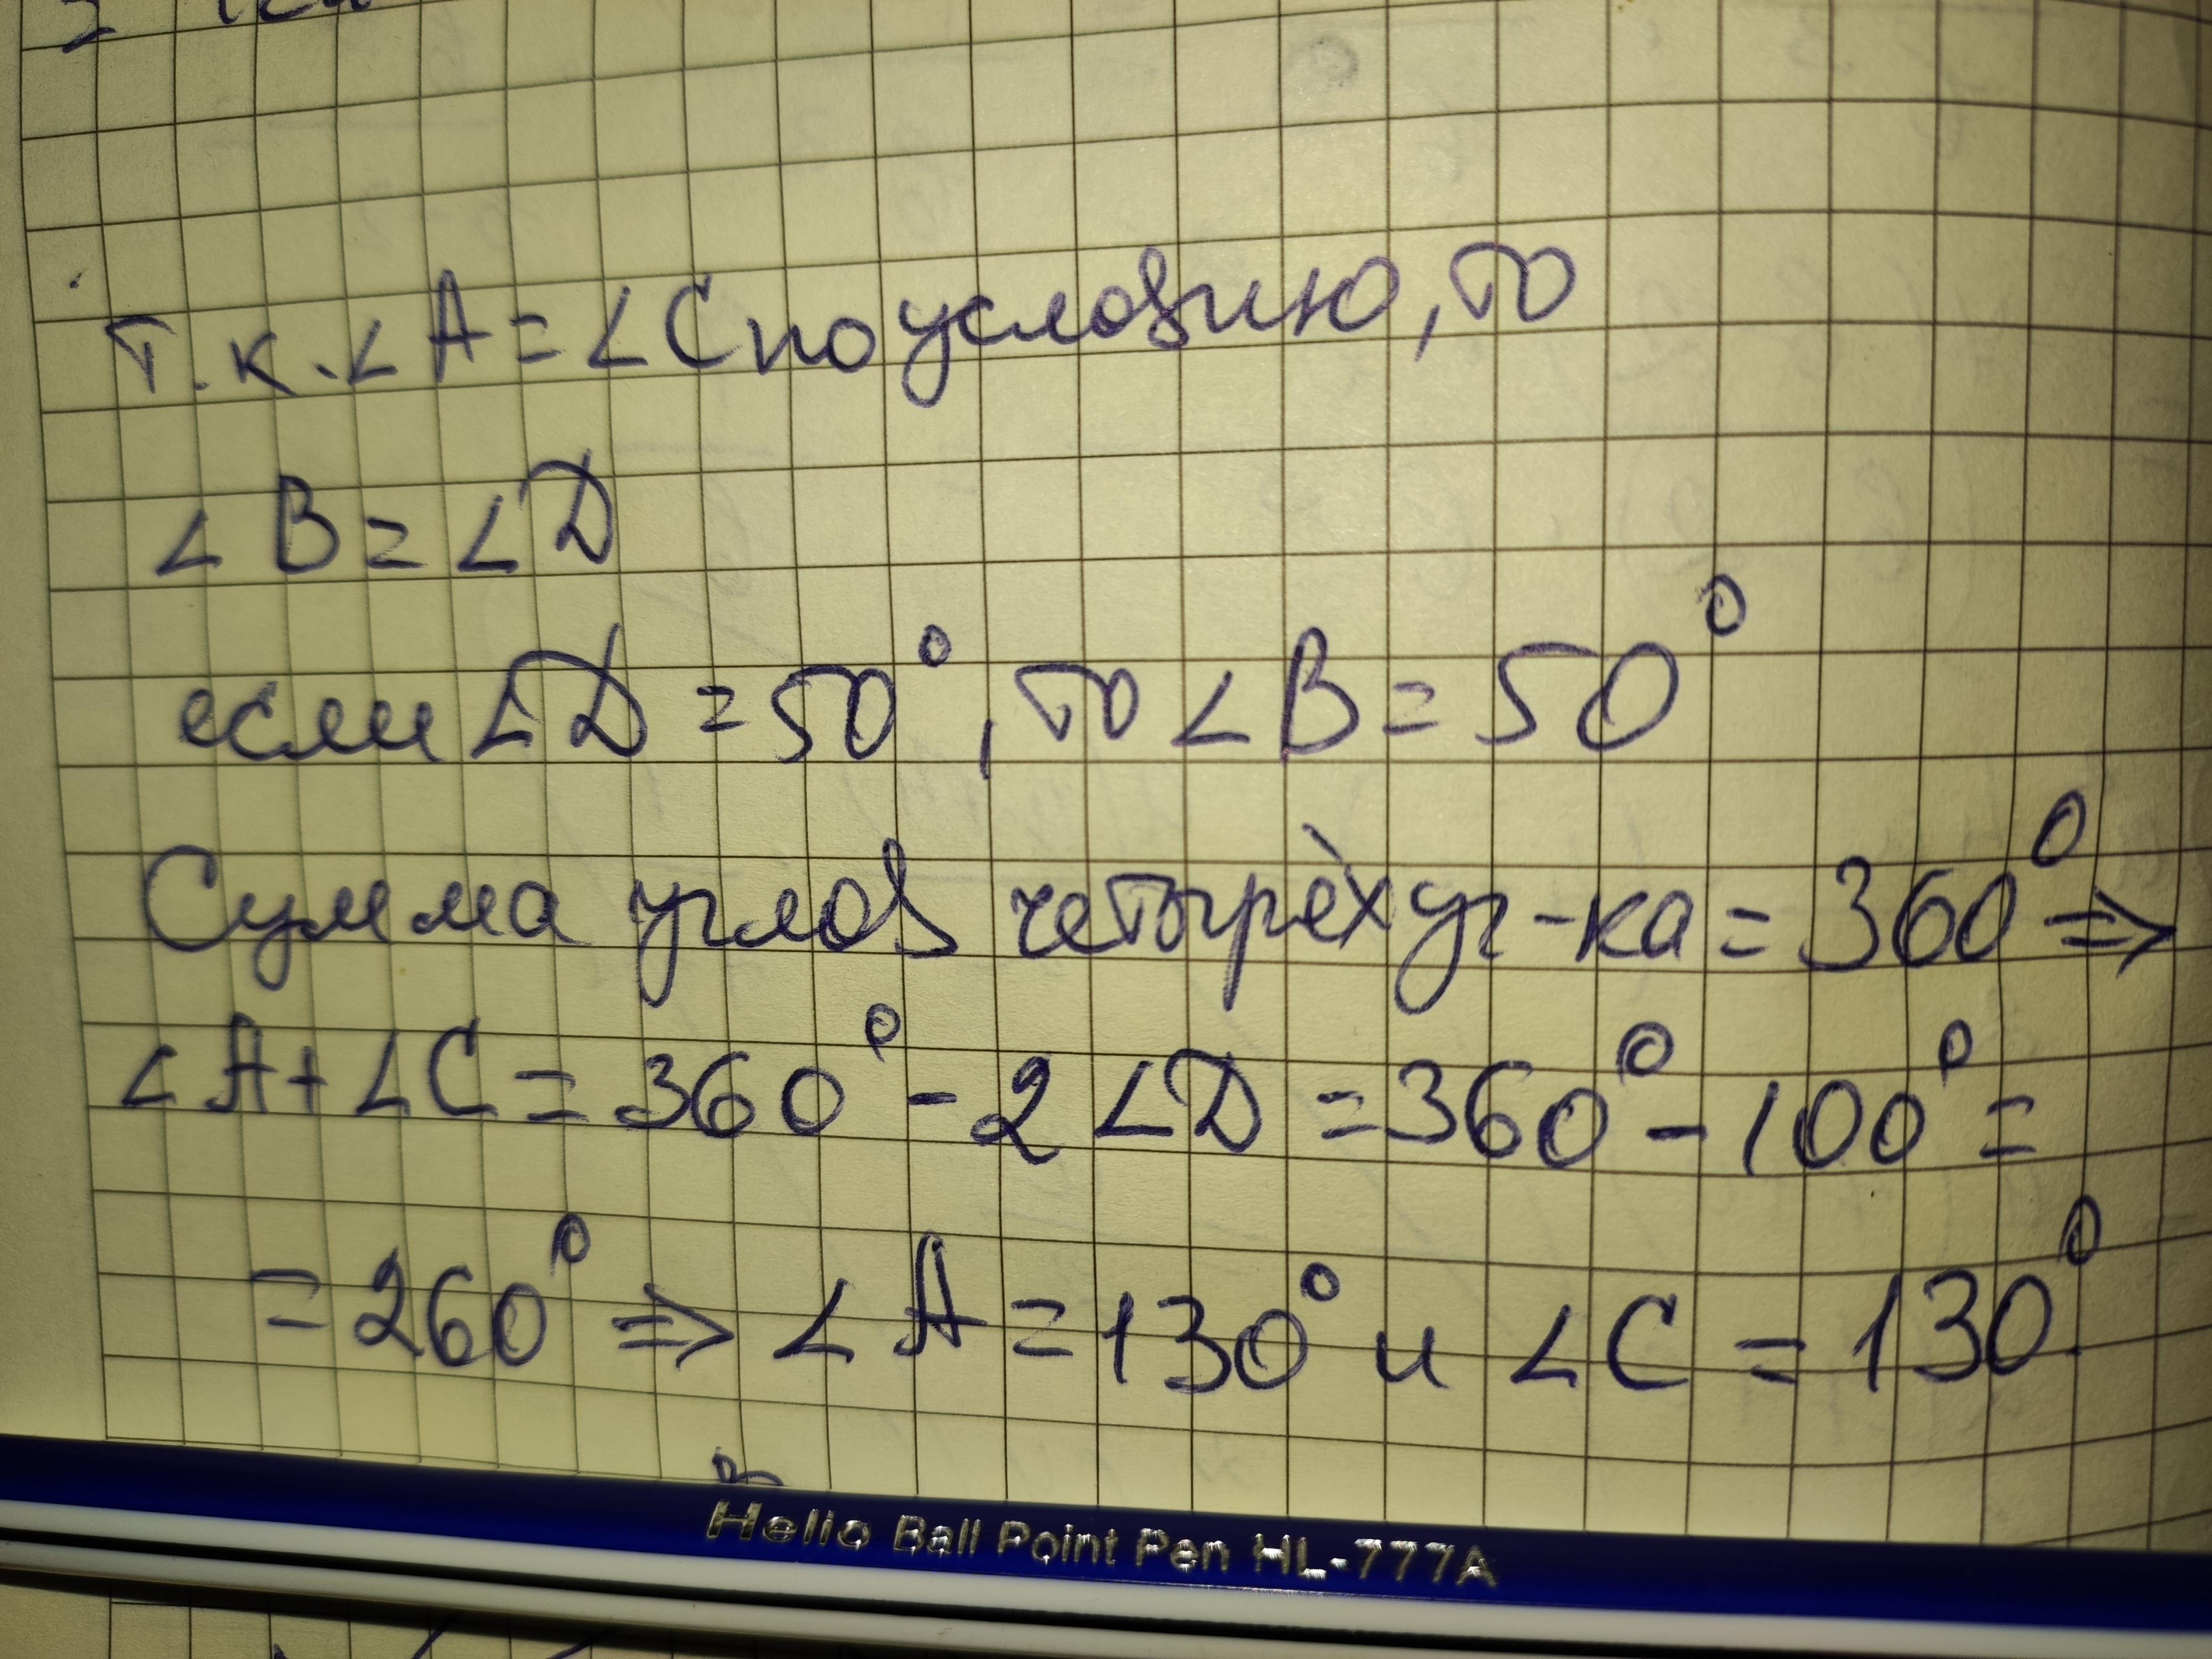 т.к. ∠A = ∠C по условию, то
∠B = ∠D
если ∠D = 50°, то ∠B = 50°
Сумма углов четырёхуг-ка = 360° ⇒
∠A + ∠C = 360° - 2∠D = 360° - 100° =
= 260° ⇒ ∠A = 130° и ∠C = 130°
Hello Ball Point Pen HL-777A